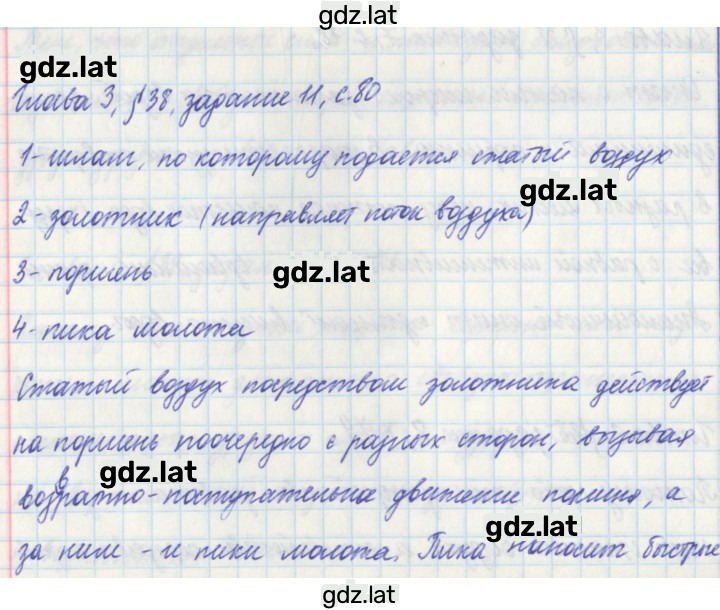 gdz.lat
gdz.lat
Глава 3, §38, задание 11, с.80
1-шланг, по которому подается сжатый воздух
gdz.lat
2-золотник (направляет поток воздуха)
3-поршень
gdz.lat
4-пика молотка
Сжатый воздух посредством золотника действует
на поршень поочередно с разных сторон, вызывая
gdz.lat
возвратно-поступательное движение поршня, а
gdz.lat
за ним - и пики молотка. Пика наносит быстрые
gdz.lat